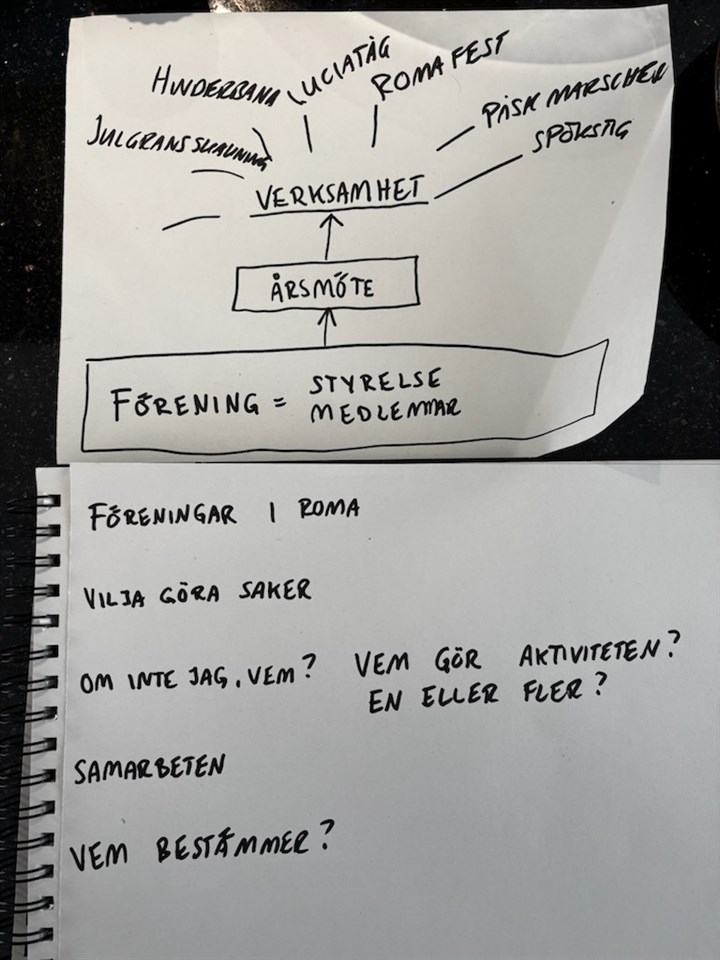 HINDERBANA
LUCIATÅG
ROMA FEST
JULGRANSSKAKNING
PÅSK MARSCHEN
SPÖKSTIG
VERKSAMHET
ÅRSMÖTE
FÖRENING = STYRELSE
MEDLEMMAR
FÖRENINGAR I ROMA
VILJA GÖRA SAKER
OM INTE JAG, VEM? VEM GÖR AKTIVITETEN?
EN ELLER FLER?
SAMARBETEN
VEM BESTÄMMER?